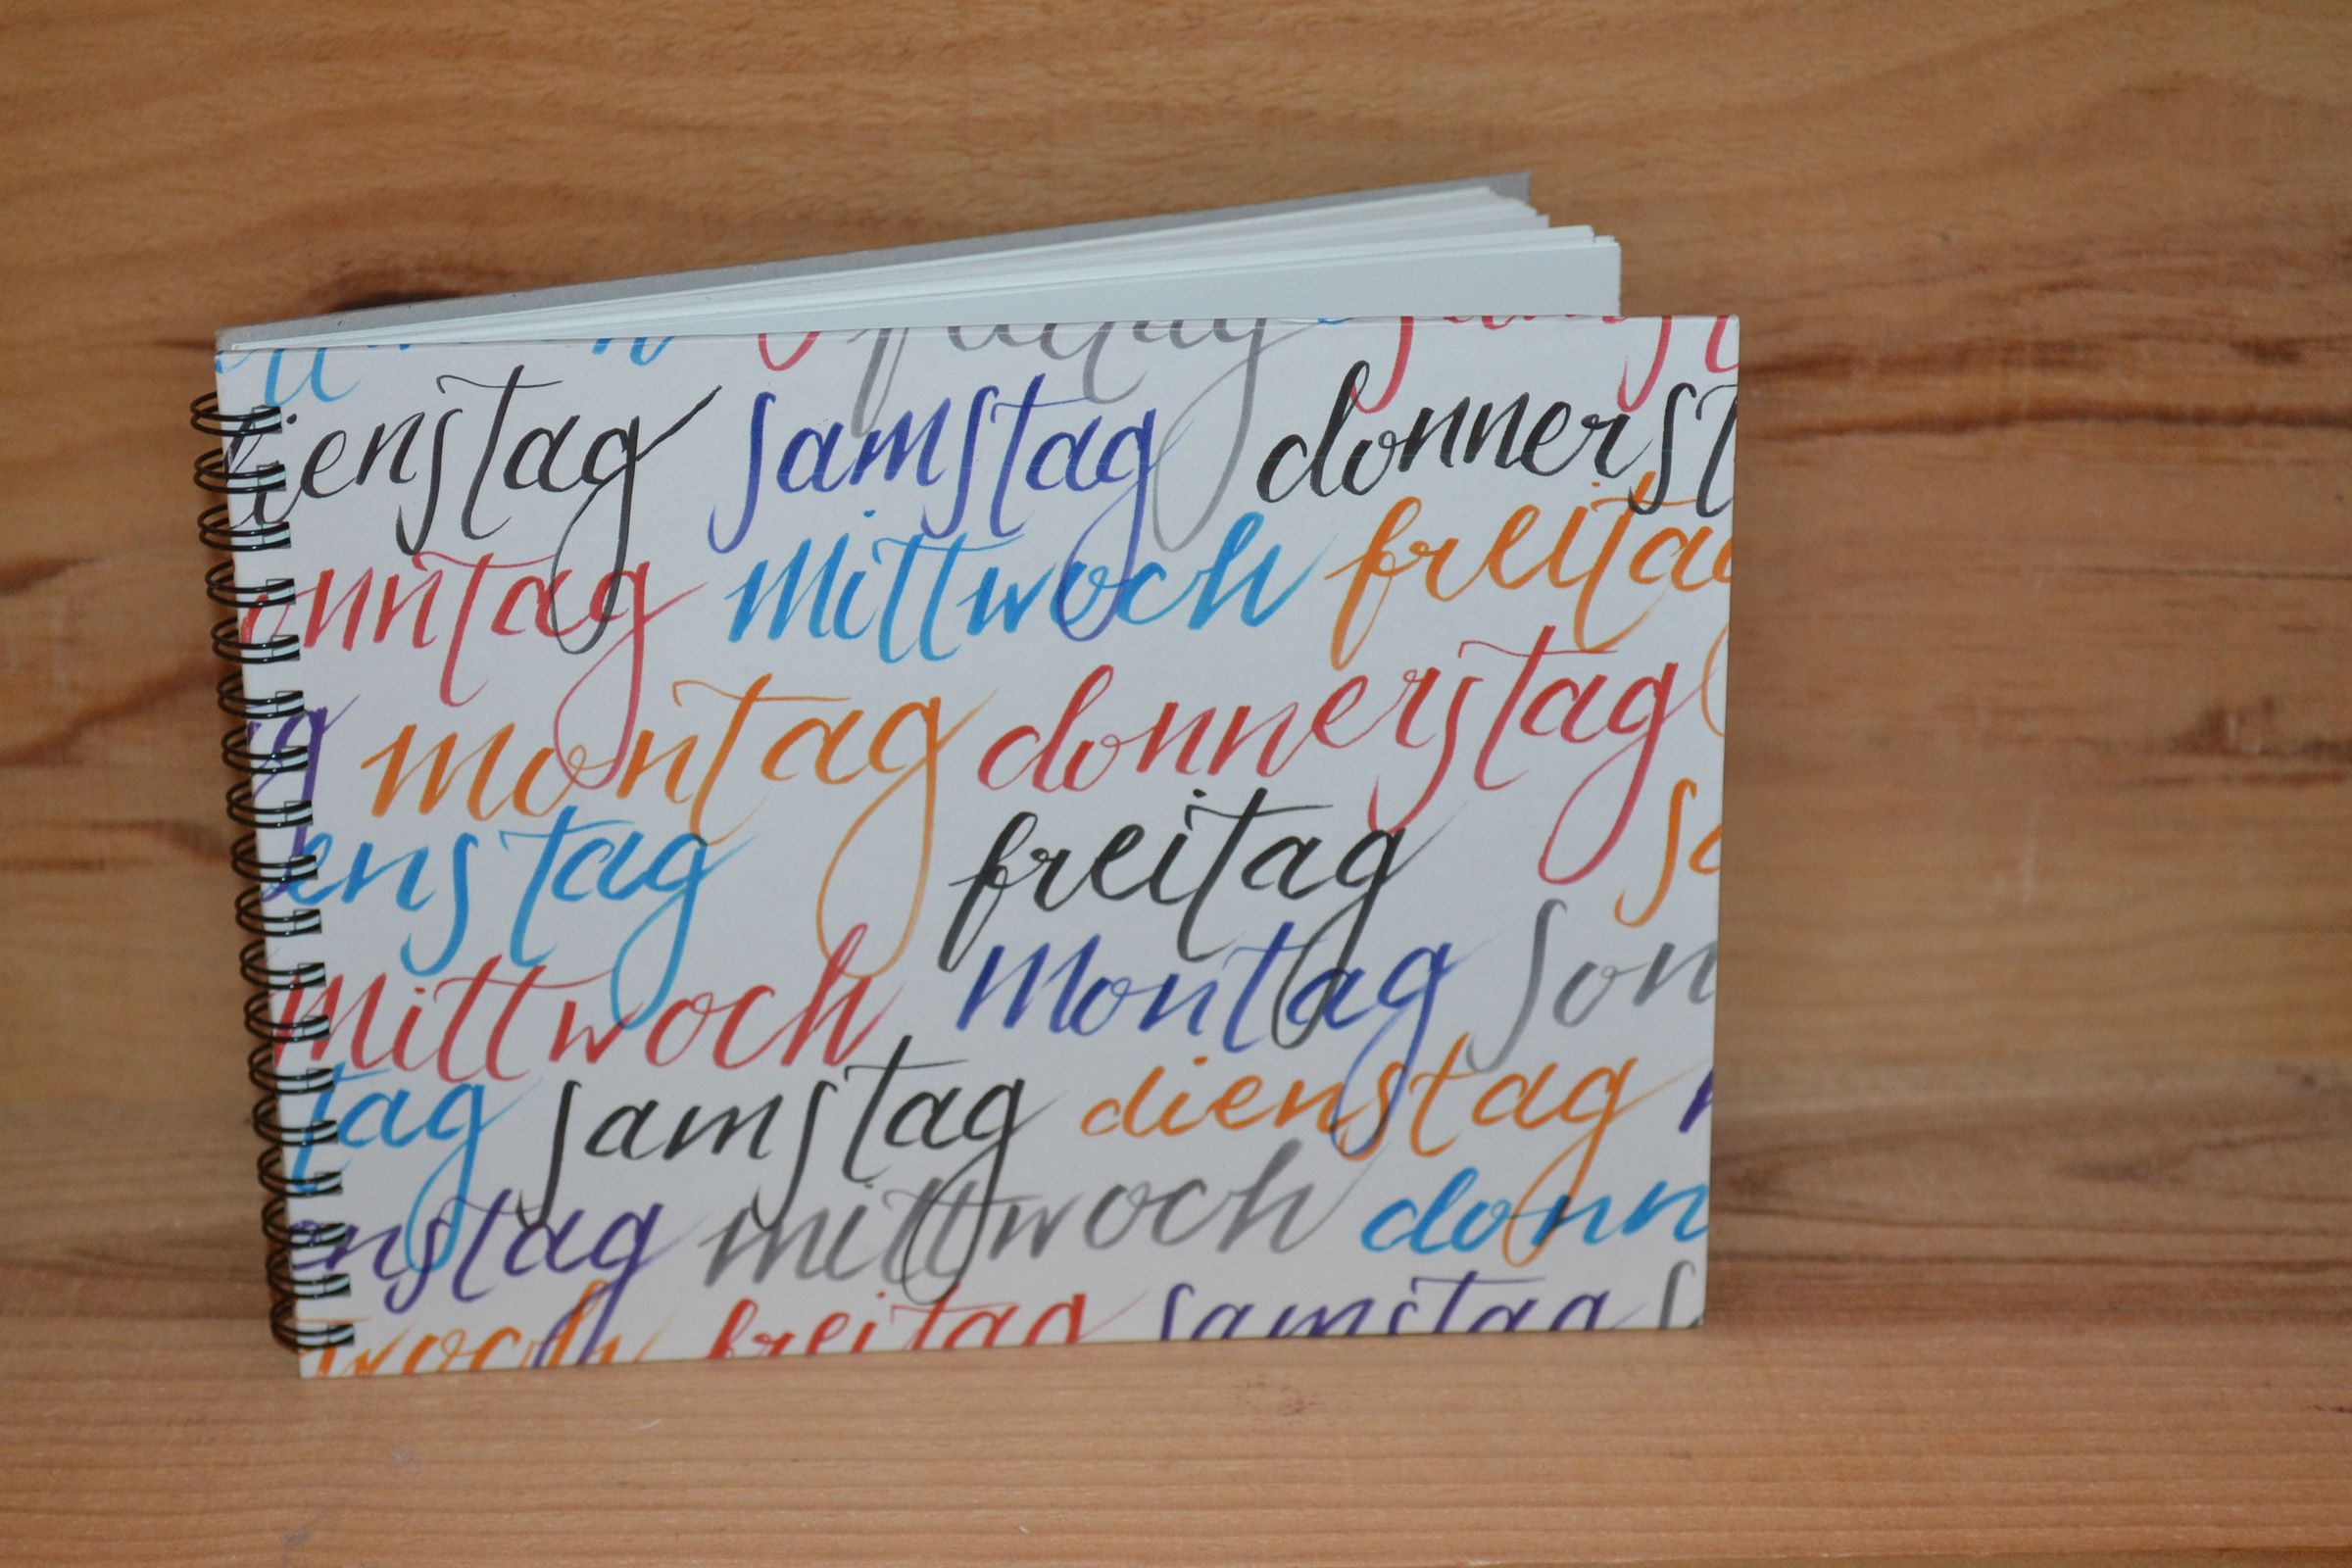 freitag samst
ienstag samstag donnerst
onntag mittwoch freitag
g montag donnerstag
enstag freitag sa
mittwoch montag son
tag samstag dienstag
enstag mittwoch donn
woch freitag samstag s